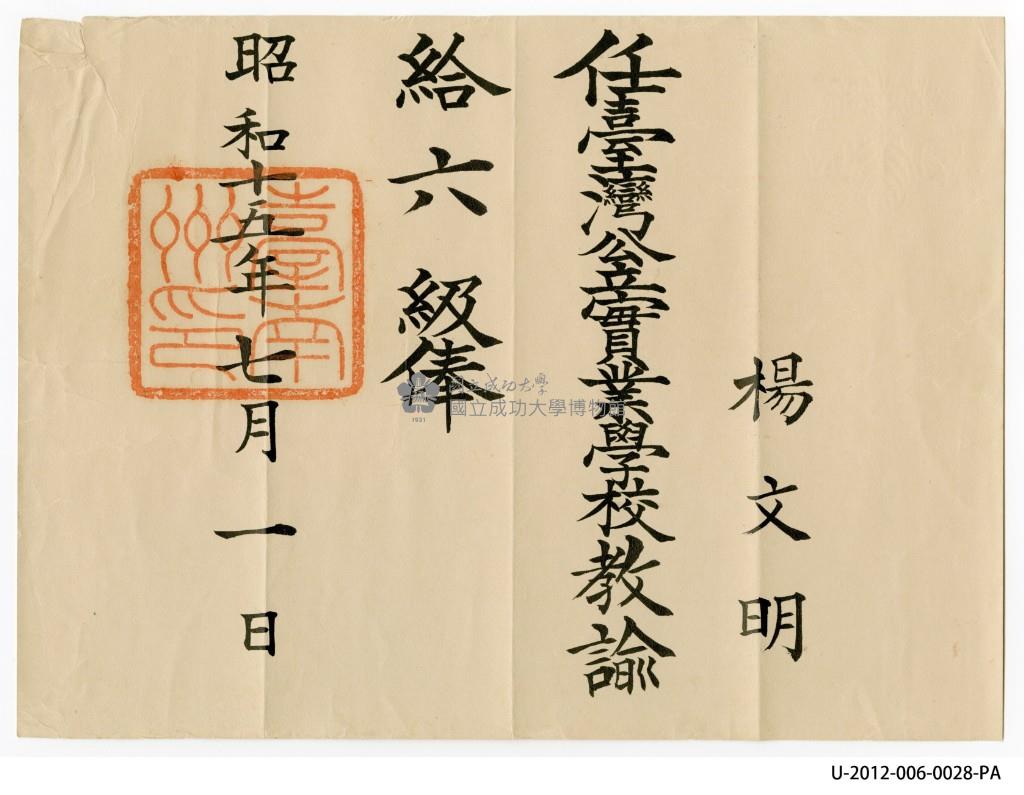 楊文明
任臺灣公立實業學校教諭
給六級俸
昭和十五年七月一日
臺南州印
國立成功大學
國立成功大學博物館
1931
U-2012-006-0028-PA